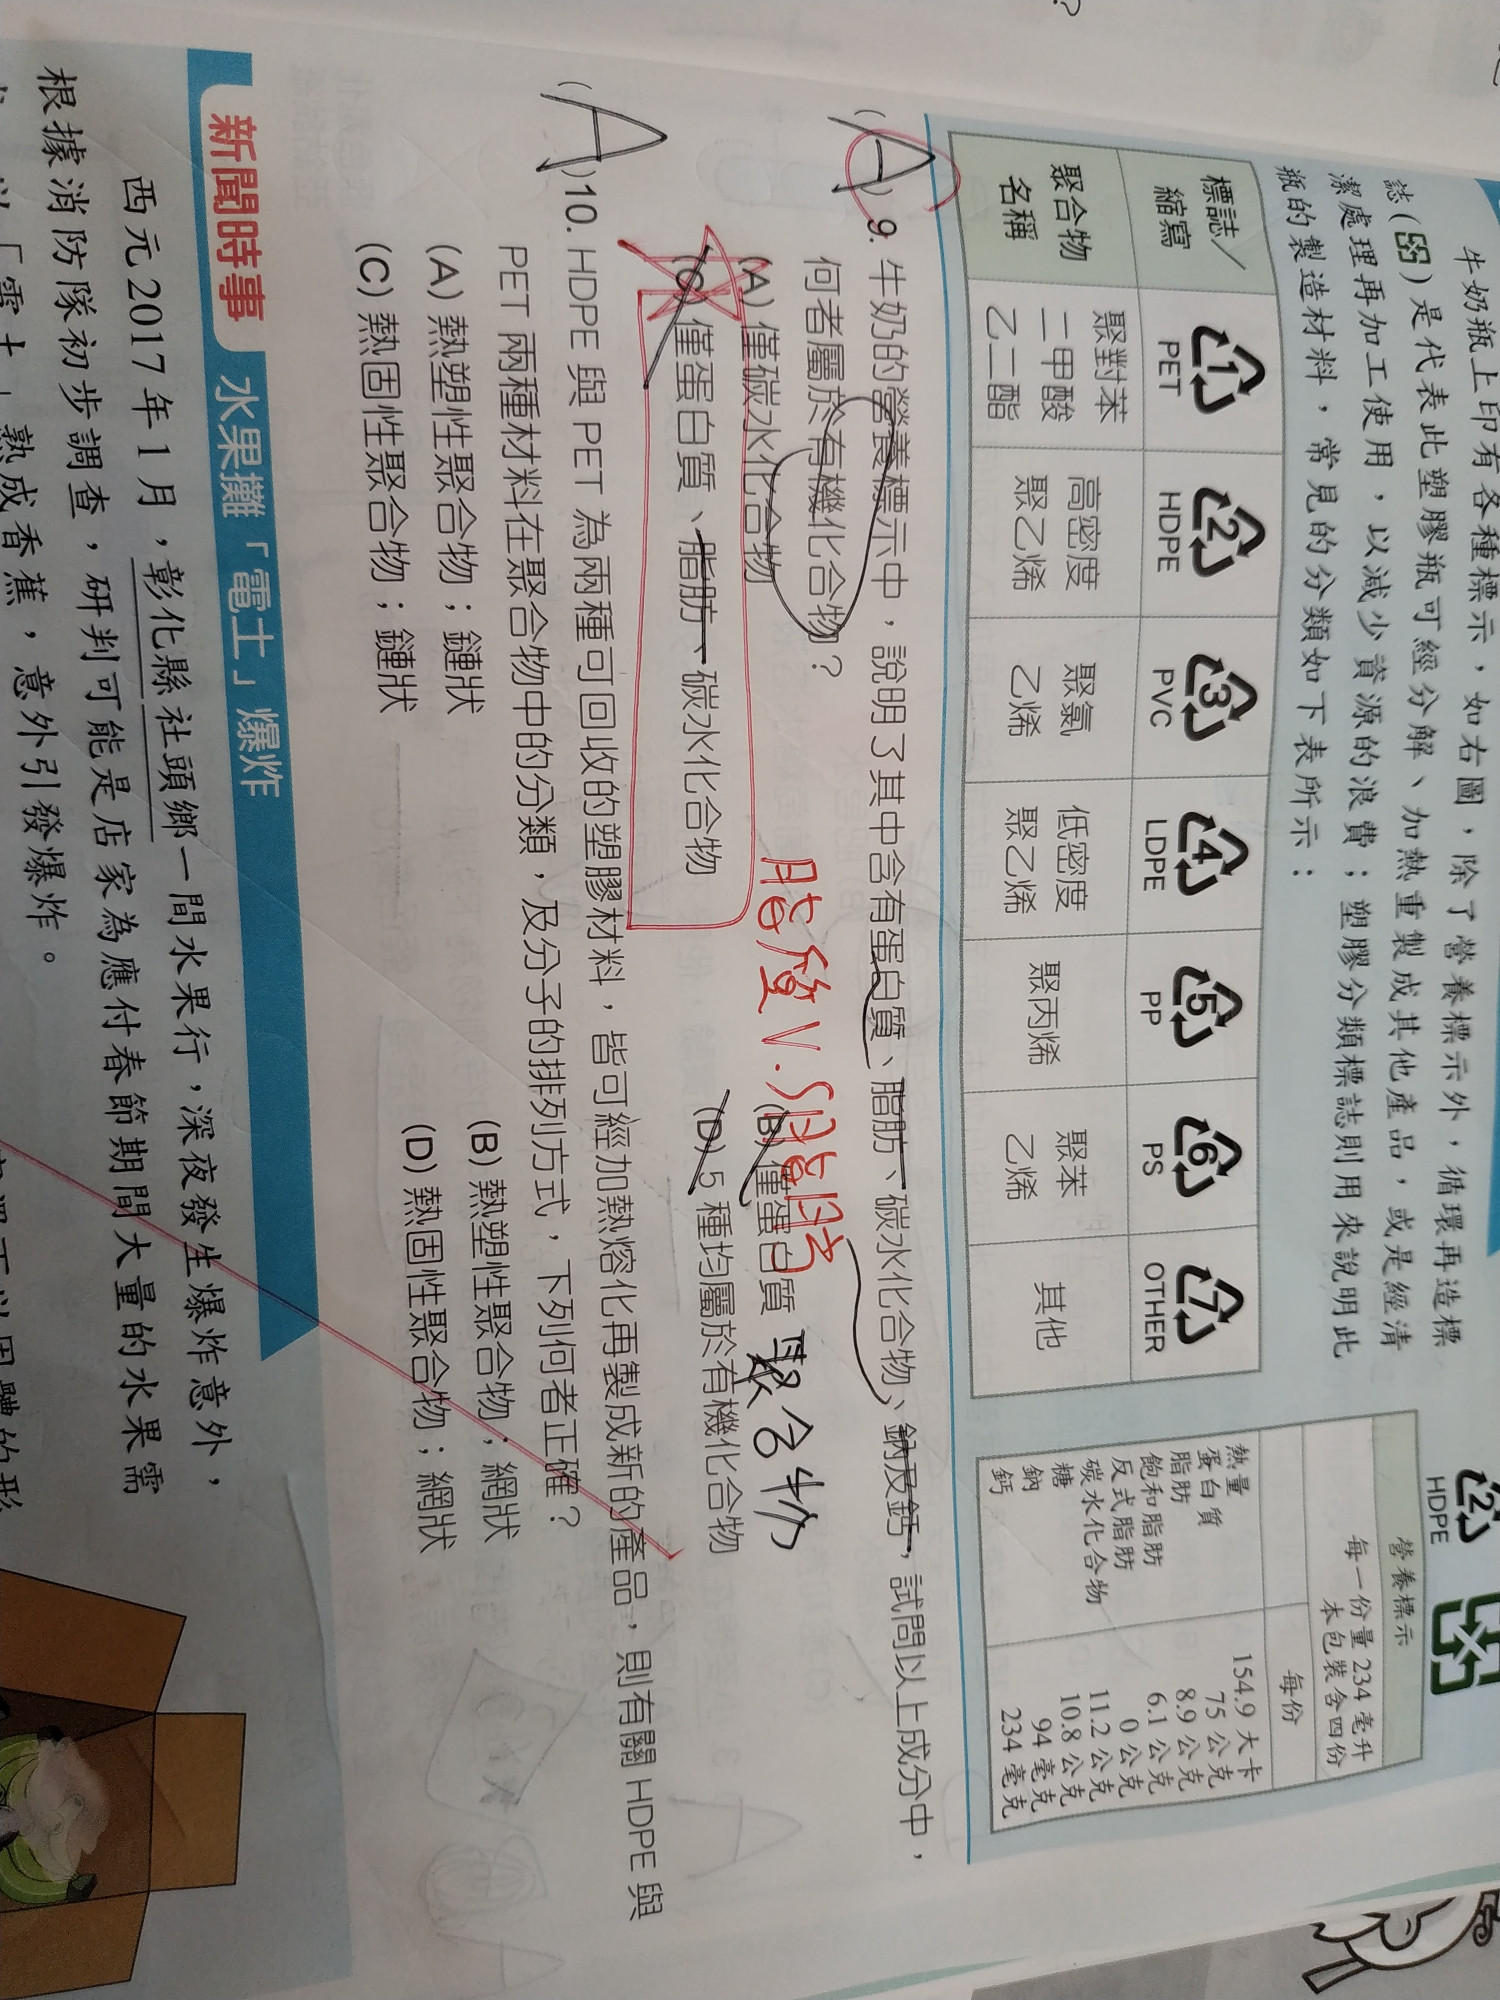 牛奶瓶上印有各種標示，如右圖，除了營養標示外，循環再造標
誌( )是代表此塑膠瓶可經分解、加熱重製成其他產品，或是經清
潔處理再加工使用，以減少資源的浪費；塑膠分類標誌則用來說明此
瓶的製造材料，常見的分類如下表所示：
2
HDPE
營養標示
每一份量 234 毫升
本包裝含四份
每份
熱量 154.9 大卡
蛋白質 75 公克
脂肪 8.9 公克
飽和脂肪 6.1 公克
反式脂肪 0 公克
碳水化合物 11.2 公克
糖 10.8 公克
鈉 94 毫克
鈣 234 毫克
標誌／縮寫 1 PET 2 HDPE 3 PVC 4 LDPE 5 PP 6 PS 7 OTHER
聚合物名稱 聚對苯二甲酸乙二酯 高密度聚乙烯 聚氯乙烯 低密度聚乙烯 聚丙烯 聚苯乙烯 其他
(A) 9. 牛奶的營養標示中，說明了其中含有蛋白質、脂肪、碳水化合物、鈉及鈣，試問以上成分中，
何者屬於有機化合物？
脂質 V.S 脂肪
聚合物
(A) 僅碳水化合物 (B) 僅蛋白質
(C) 僅蛋白質、脂肪、碳水化合物 (D) 5 種均屬於有機化合物
(A) 10. HDPE 與 PET 為兩種可回收的塑膠材料，皆可經加熱熔化再製成新的產品，則有關 HDPE 與
PET 兩種材料在聚合物中的分類，及分子的排列方式，下列何者正確？
(A) 熱塑性聚合物；鏈狀 (B) 熱塑性聚合物；網狀
(C) 熱固性聚合物；鏈狀 (D) 熱固性聚合物；網狀
新聞時事 水果攤「電土」爆炸
西元 2017 年 1 月，彰化縣社頭鄉一間水果行，深夜發生爆炸意外，
根據消防隊初步調查，研判可能是店家為應付春節期間大量的水果需
「電土」熟成香蕉，意外引發爆炸。